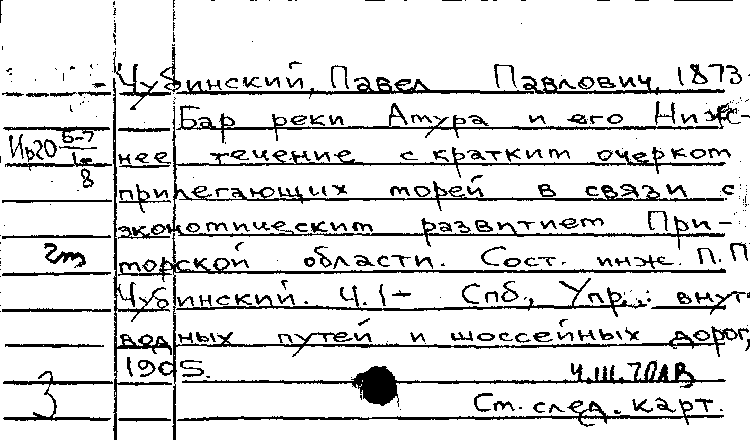 Чубинский, Павел Павлович, 1873-
Бар реки Амура и его Ниж-
ИрГО Б-7
1-
8
нее течение с кратким очерком
прилегающих морей в связи с
экономическим развитием При-
2т
морской области. Сост. инж. П.П.
Чубинский. Ч.1- Спб., Упр. внут.
водных путей и шоссейных дорог,
1905.
4.III.70
3
См. след. карт.